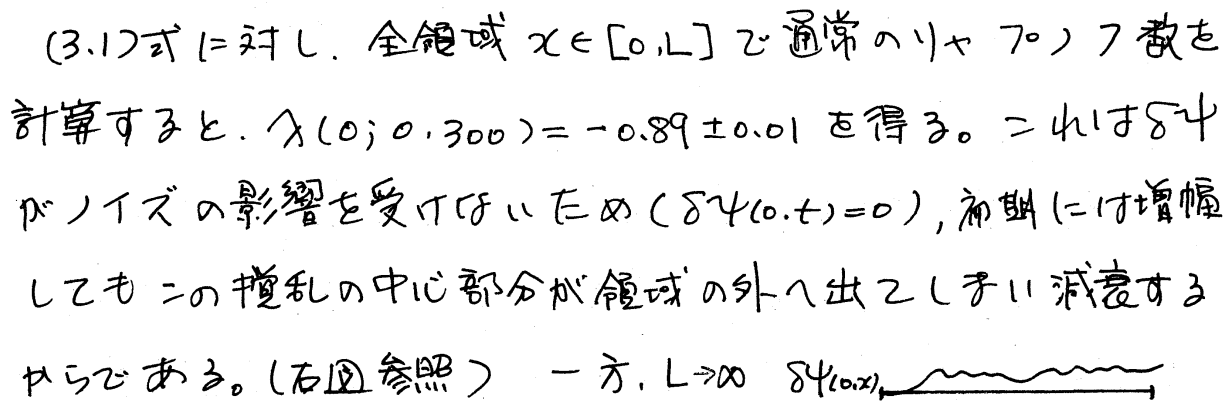 (3.1)式に対し、全領域 x∈[0,L] で通常のリャプノフ数を
計算すると、λ(0;0,300)=-0.89±0.01 を得る。これはδψ
がノイズの影響を受けないため(δψ(0,t)=0),初期には増幅
してもこの擾乱の中心部分が領域の外へ出てしまい減衰する
からである。(右図参照) 一方、L→∞ δψ(0,x)